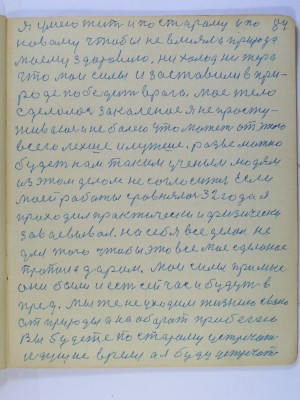 Я умею жить и по старому и по
новому чтобы не влияла природа
моему здоровию, ни холод ни жара
что мои силы и заставили в при-
роде победить врага. Мое тело
сделалося закаленое я не просту-
живаюсь и не болею что может от этого
всего легше и лутше, разве можно
будет нам таким ученым людям
из этом делом не согласится. Если
моей работы сровнялося 32 года я
приходил практически и физически
завоевывал на себя все делал не
для того чтобы это все мое сделаное
пропало даром. Мои силы прямые
они были и есть сейчас и будут в
пред. Мы же не уходим жизнию своею
от природы а наоборот
Вы будете по старому встречать
идущие время а я буду встречать